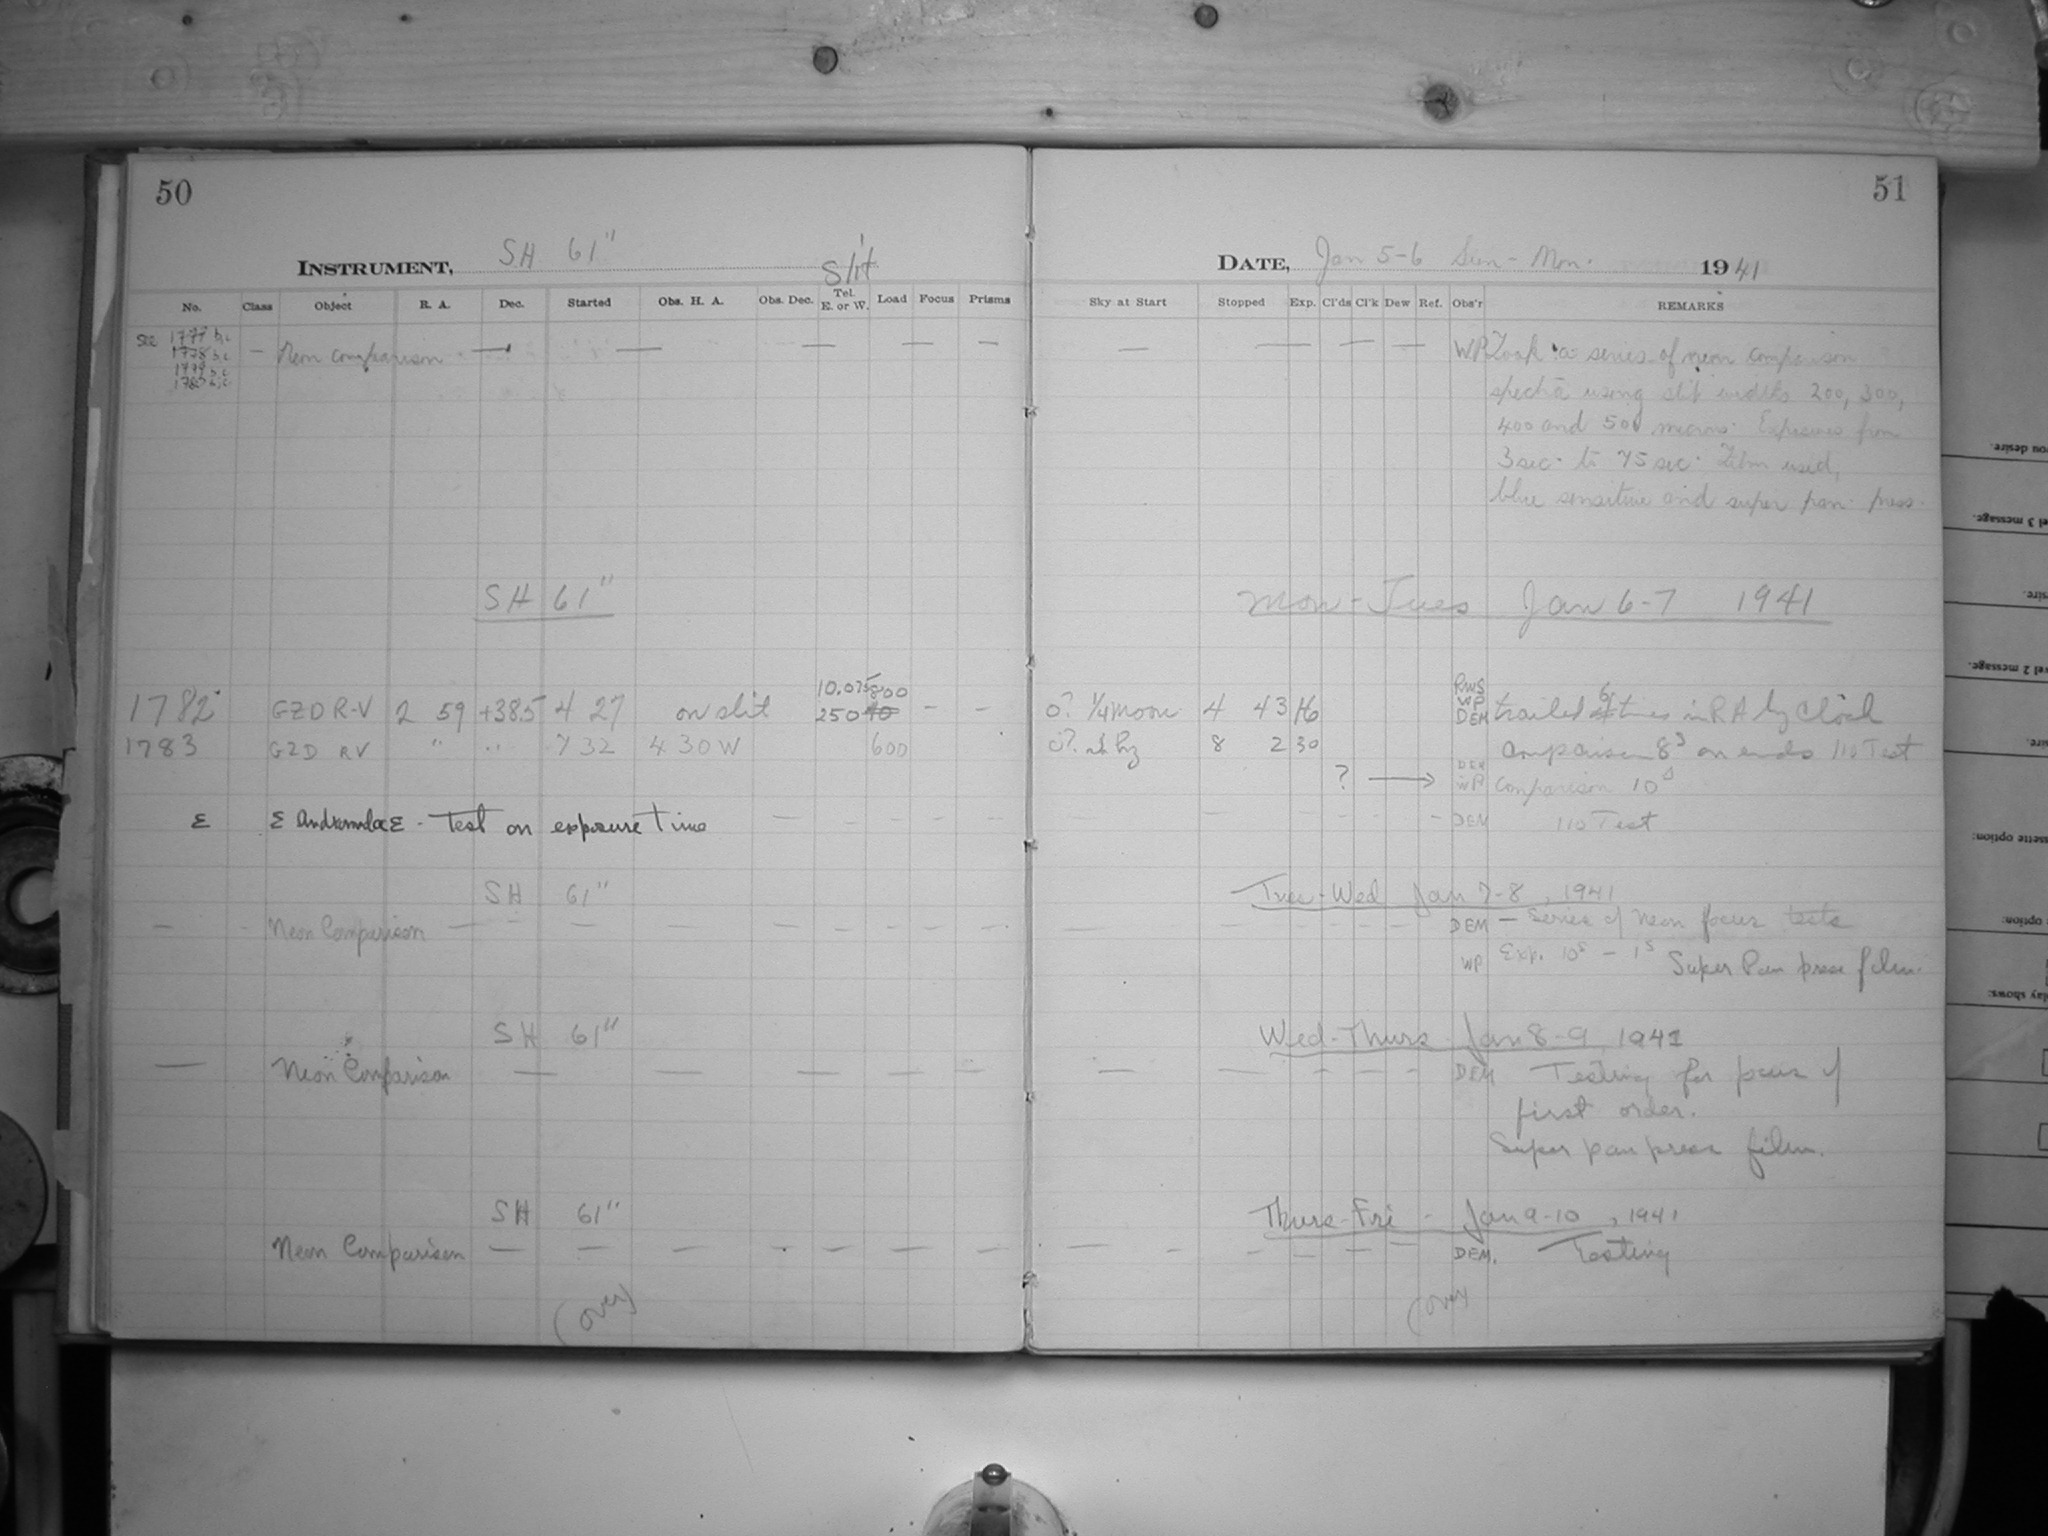 50
INSTRUMENT, SH 61" Slit
No. Class Object R. A. Dec. Started Obs. H. A. Obs. Dec. Tel. E. or W. Load Focus Prisms
see 1777 b,c — Neon comparison — — — — — —
1778 b,c
1779 b,c
SH 61"
10.075 800
1782 GZD R-V 2 59 +38.5 4 27 on slit 250 — —
1783 GZD RV " " 7 32 4 30 W 600
Σ Σ Andromedae Σ - Test on exposure time — — — — —
SH 61"
— - Neon Comparison — — — — — — — — —
SH 61"
— Neon Comparison — — — — — —
SH 61"
Neon Comparison — — — — — — — —
(over)
51
DATE, Jan 5-6 Sun - Mon. 1941
Sky at Start Stopped Exp. Cl'ds Cl'k Dew Ref. Obs'r REMARKS
— — — — WP Took a series of neon comparison
spectra using slit widths 200, 300,
400 and 500 microns. Exposures from
3 sec. to 75 sec. Film used,
blue sensitive and super pan. press.
Mon - Tues Jan 6-7 1941
RWS
WP
DEM
0? 1/4 moon 4 43 16 trailed 6 times in RA by clock
8 2 30 Comparison on ends 110 Test
DEM
? → WP Comparison 10s
— — - - - - DEM 110 Test
Tues - Wed Jan 7-8, 1941
— — - - - - DEM — Series of Neon focus tests
WP Exp. 10s — 1s Super Pan press film.
Wed - Thurs Jan 8-9, 1941
— — - - - DEM Testing for focus of
first order.
Super pan press film.
Thurs - Fri - Jan 9-10, 1941
— - - — — — DEM. Testing
(over)
you desire.
vel 3 message.
vel 2 message.
ssette option:
option:
play shows: